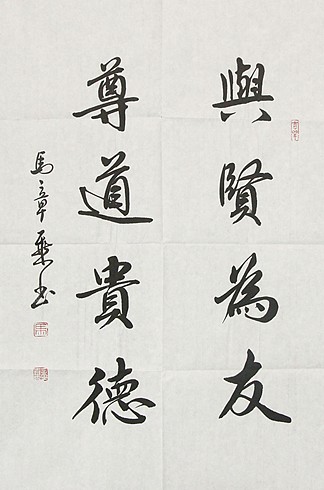 與賢為友
尊道貴德
馬章乘書